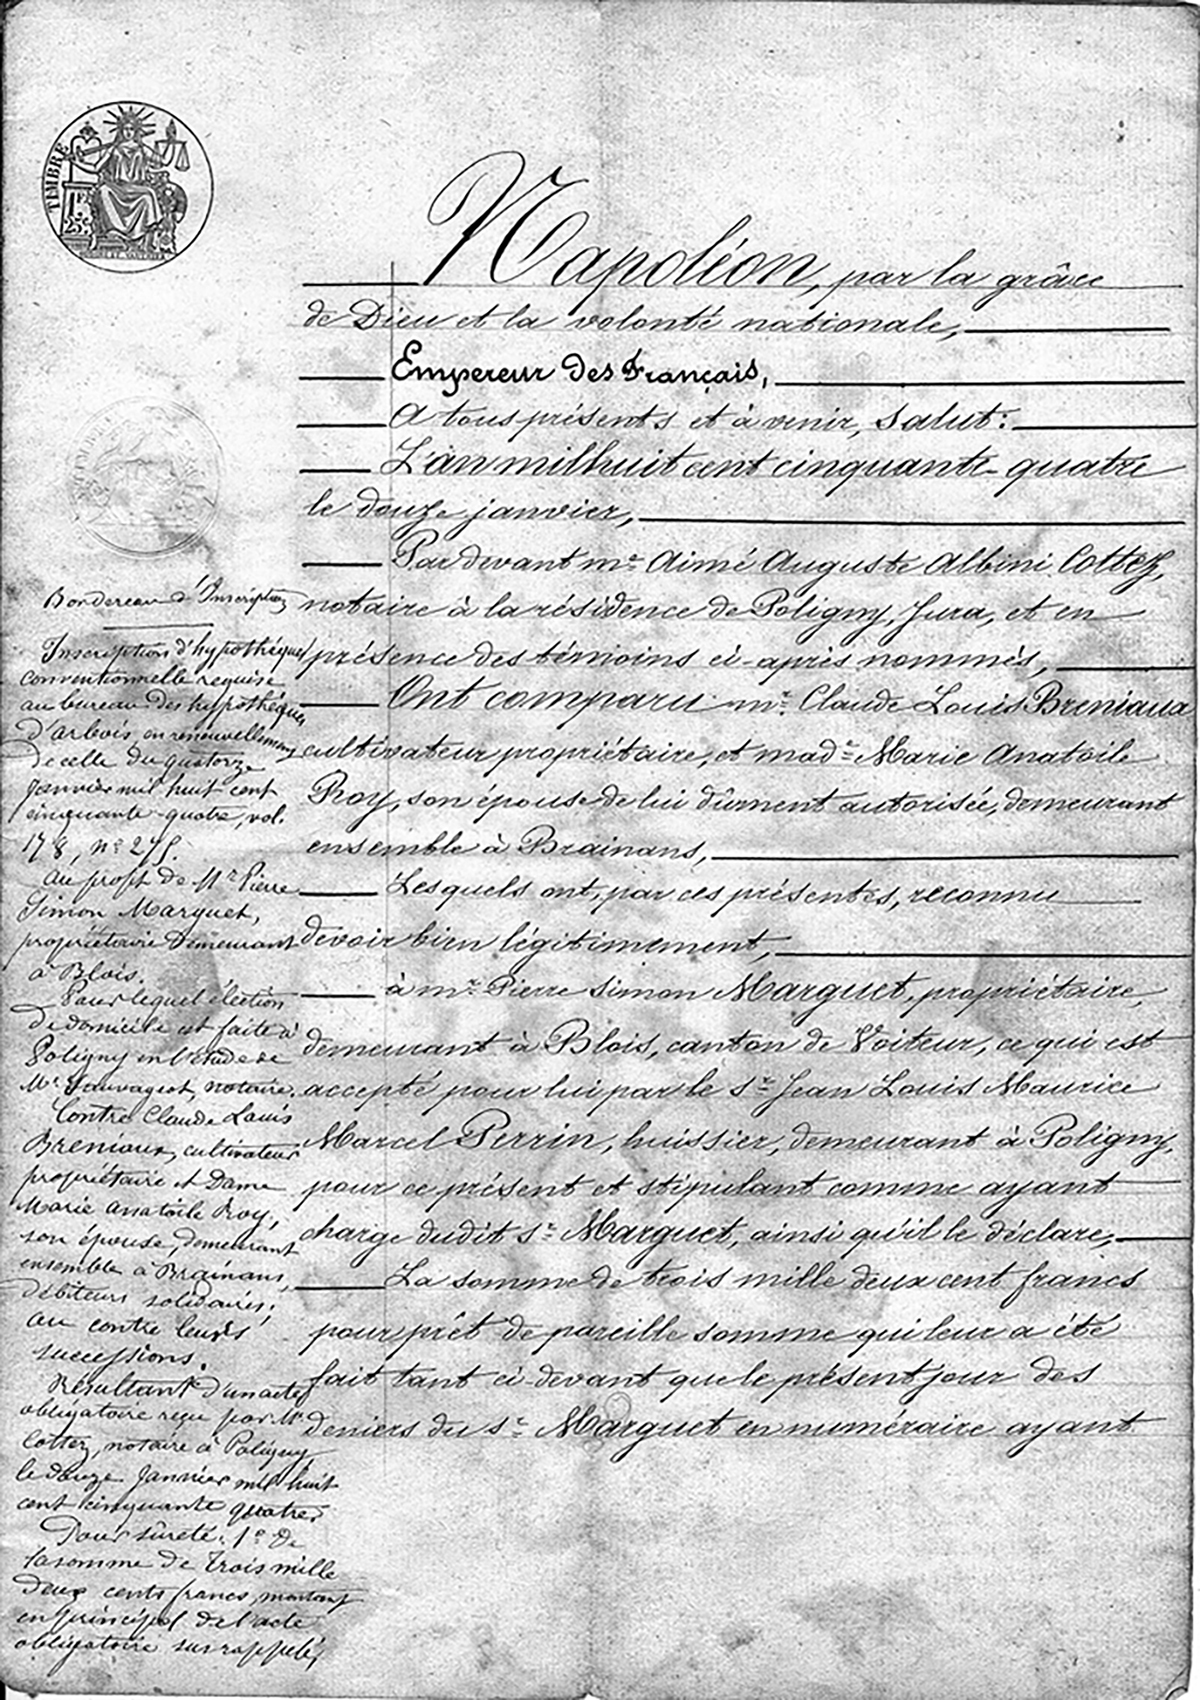 TIMBRE
1F
25c
Napoléon, par la grâce
de Dieu et la volonté nationale,
Empereur des Français,
A tous présents et à venir, Salut:
L'an mil huit cent cinquante-quatre
le douze janvier,
Par devant me Aimé Auguste Albini Cottez,
notaire à la résidence de Poligny, Jura, et en
présence des témoins ci-après nommés,
Ont comparu mr Claude Louis Breniaux
cultivateur propriétaire, et made Marie Anatoile
Roy, son épouse de lui dûment autorisée, demeurant
ensemble à Brainans,
Lesquels ont, par ces présentes, reconnu
devoir bien légitimement,
à mr Pierre Simon Marguet, propriétaire,
demeurant à Blois, canton de Voiteur, ce qui est
accepté pour lui par le sr Jean Louis Maurice
Marcel Perrin, huissier, demeurant à Poligny,
pour ce présent et stipulant comme ayant
charge dudit sr Marguet, ainsi qu'il le déclare,
La somme de trois mille deux cent francs
pour prêt de pareille somme qui leur a été
fait tant ci-devant que le présent jour des
deniers du sr Marguet en numéraire ayant
Bordereau d'Inscription
Inscription d'hypothèque
conventionnelle requise
au bureau des hypothèques
d'arbois, en renouvellement
de celle du quatorze
Janvier mil huit cent
cinquante-quatre, vol.
178, no 275.
Au profit de Mr Pierre
Simon Marguet,
propriétaire demeurant
à Blois.
Pour lequel élection
de domicile est faite à
Poligny en l'étude de
Me Sauvageot, notaire.
Contre Claude Louis
Breniaux, cultivateur
propriétaire et Dame
Marie Anatoile Roy,
son épouse, demeurant
ensemble à Brainans,
débiteurs solidaires,
au contre leurs
successions.
Résultant d'un acte
obligatoire reçu par Me
Cottez, notaire à Poligny
le douze Janvier mil huit
cent cinquante quatre.
Pour sûreté: 1o De
la somme de Trois mille
deux cents francs, montant
en principal de l'acte
obligatoire sus rappelé,